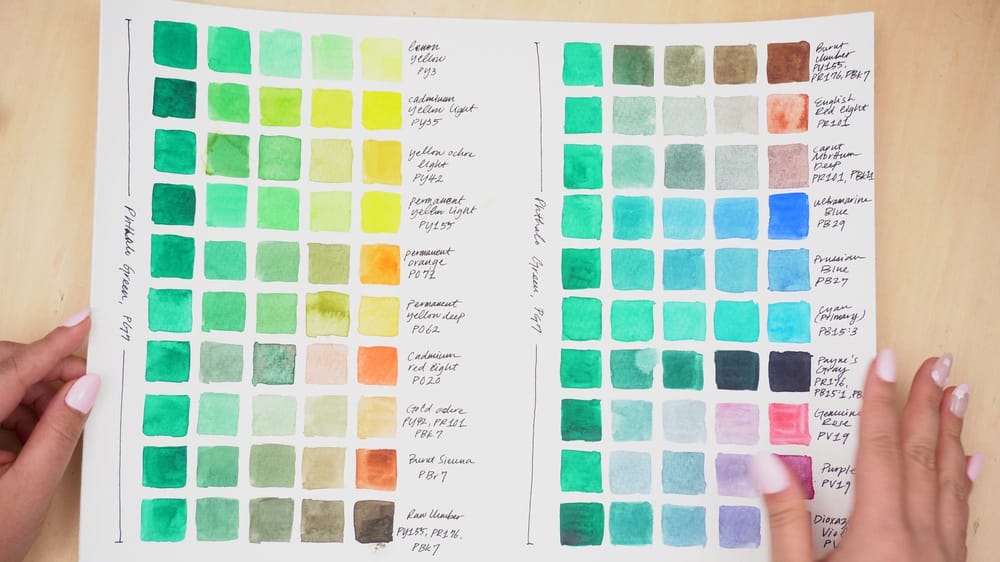 Phthalo Green, PG7
lemon
yellow
PY3
cadmium
yellow light
PY35
yellow ochre
light
PY42
permanent
yellow light
PY155
permanent
orange
PO71
Permanent
yellow deep
PO62
Cadmium
red light
PO20
Gold ochre
PY42, PR101
PBk7
Burnt Sienna
PBr7
Raw Umber
PY155, PR176,
PBk7
Phthalo Green, PG7
Burnt
Umber
PY155,
PR176, PBk7
English
Red Light
PR101
Caput
Mortuum
Deep
PR101, PBk11
Ultramarine
Blue
PB29
Prussian
Blue
PB27
Cyan
(Primary)
PB15:3
Payne's
Gray
PR176,
PB15:1, PB
Genuine
Rose
PV19
Purple
PV19
Dioxaz
Viol
PV